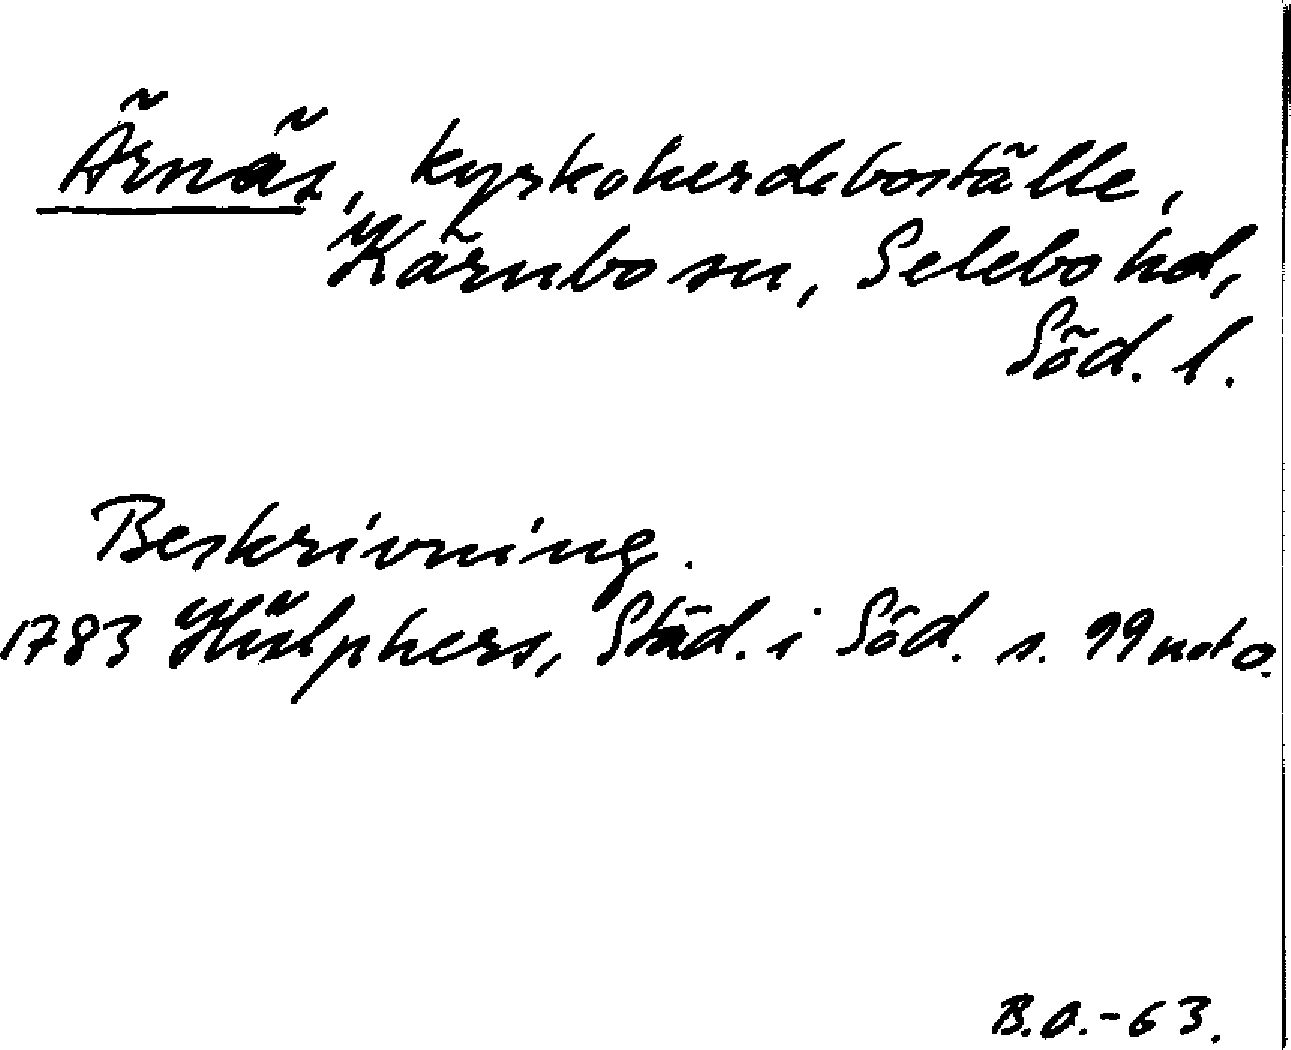 Ärnäs, kyrkoherdeboställe,
Kärnbo sn, Selebo hd,
Söd. l.
Beskrivning.
1783 Hülphers, Städ. i Söd. s. 99 not o.
B.O.-63.